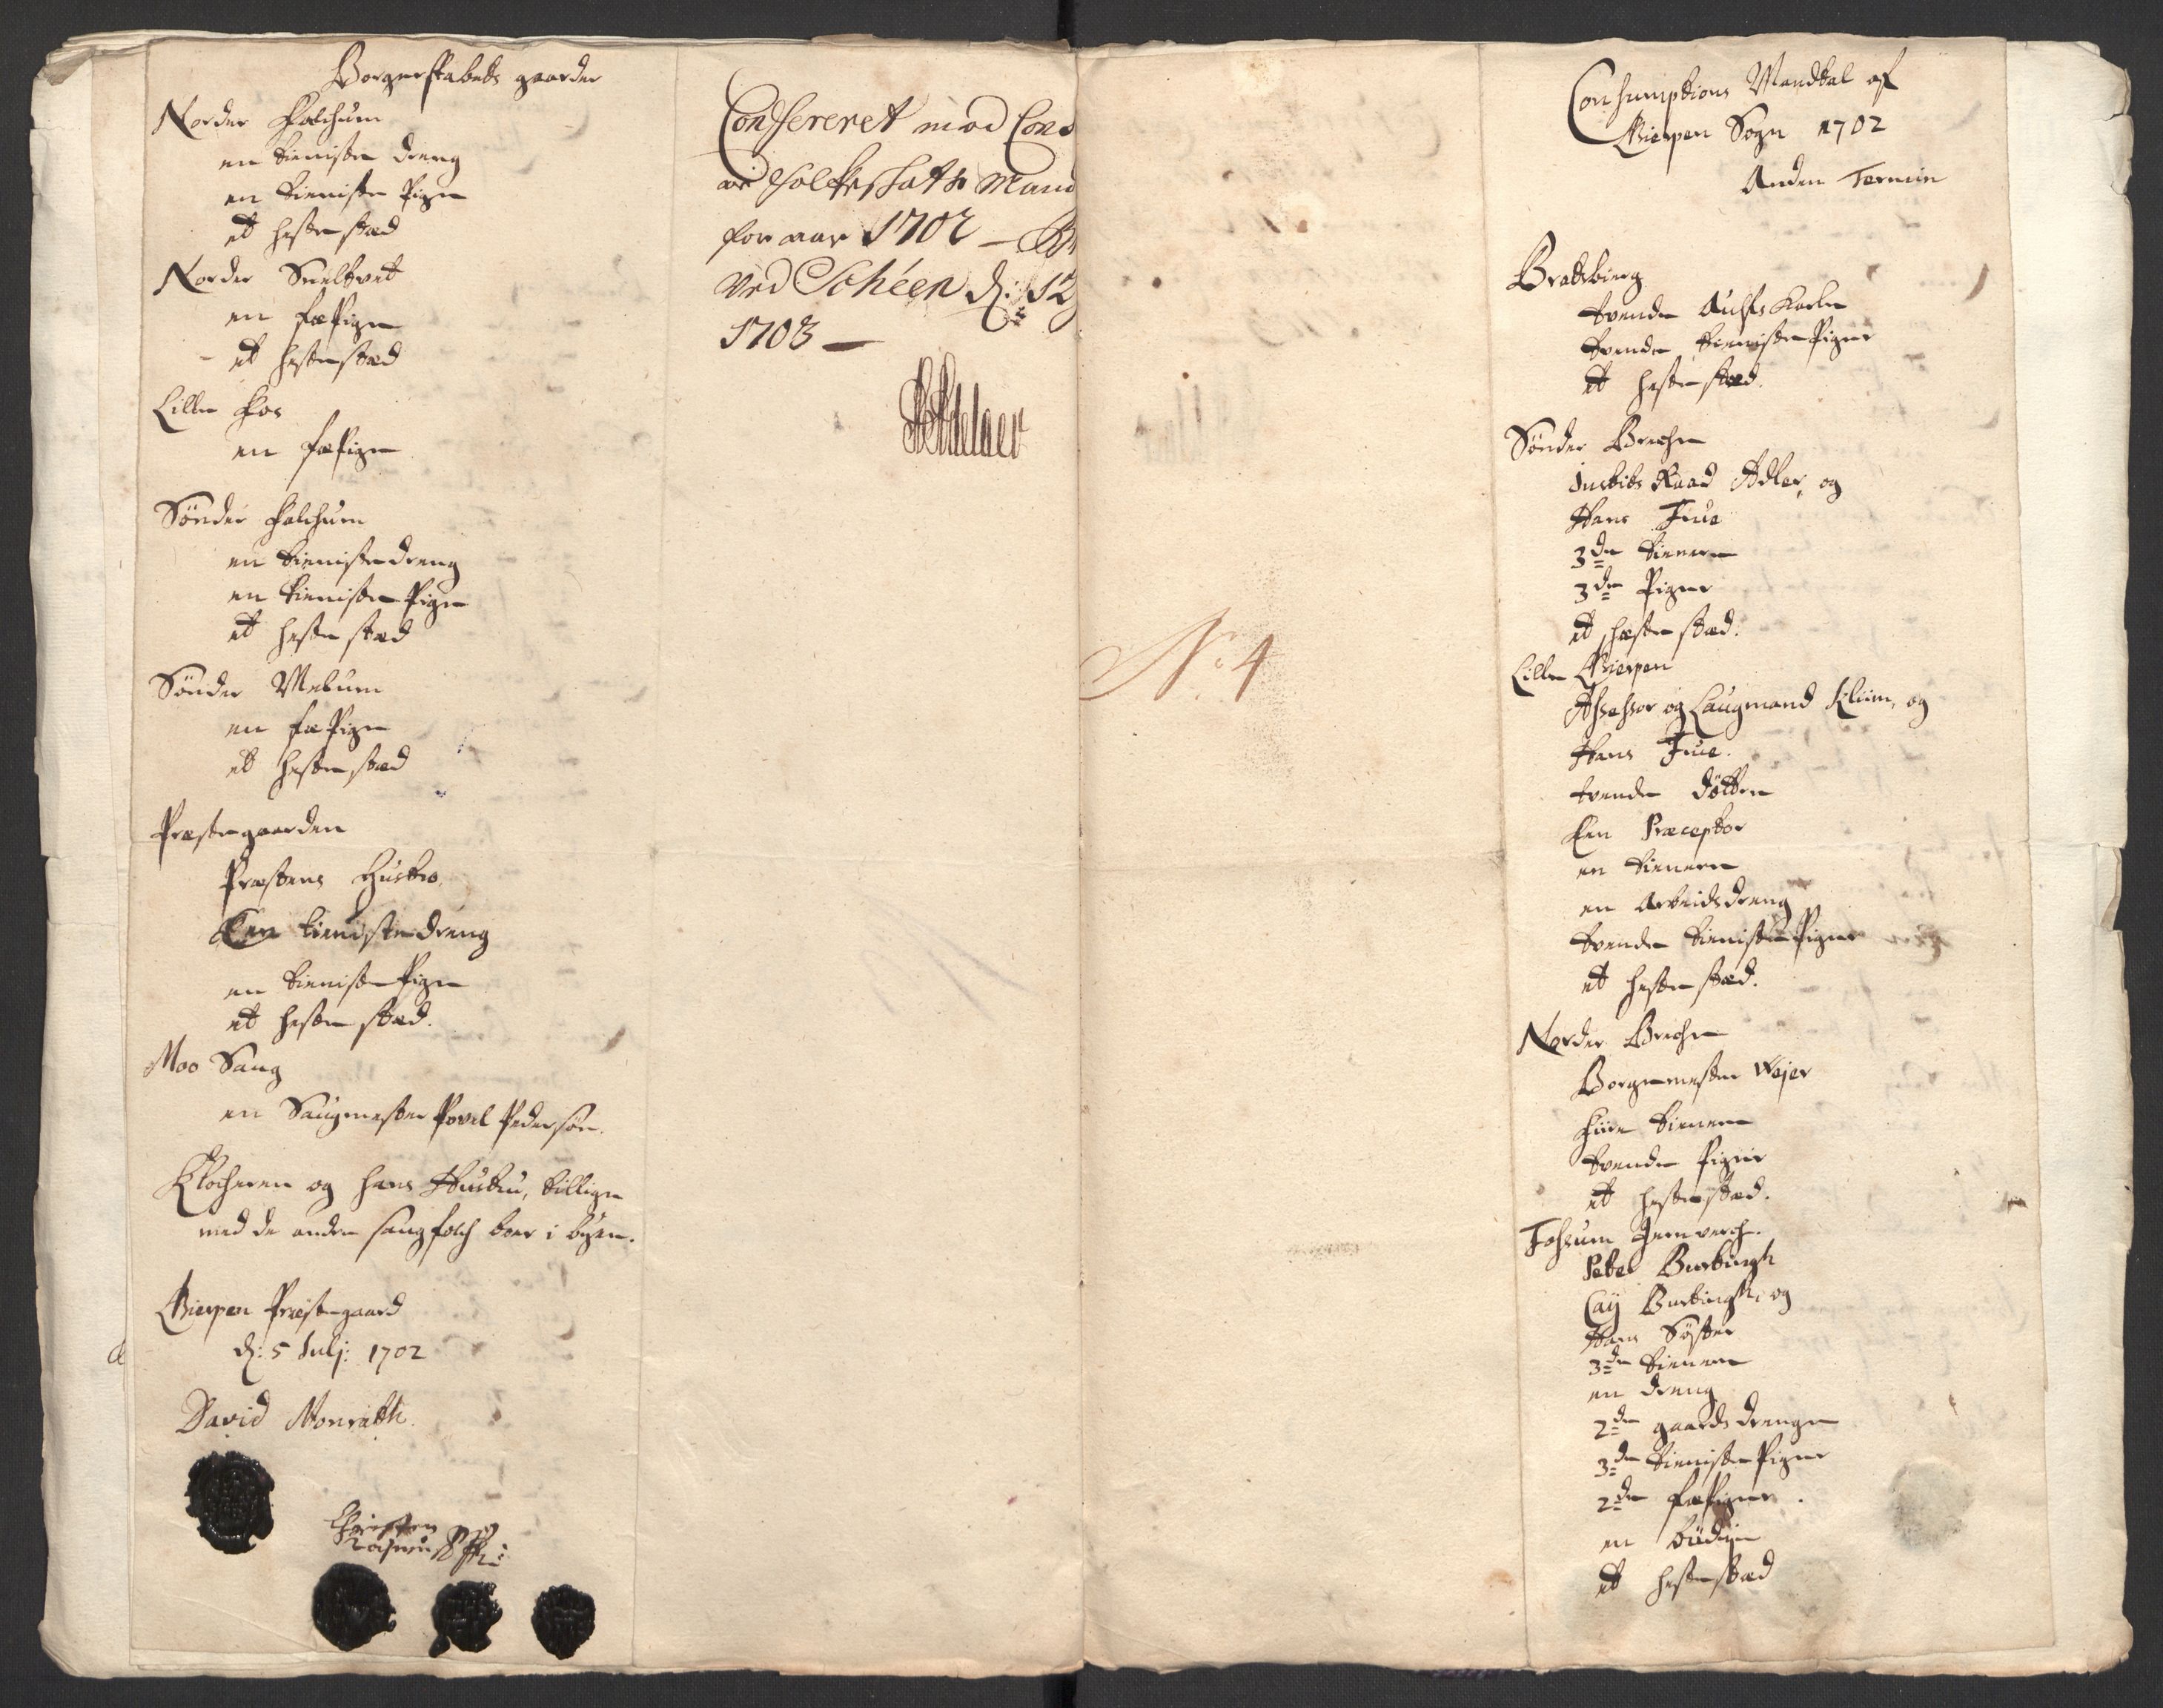 Borgerskabets gaarder
Norder Falchum
en tieniste dreng
en tieniste Pige
et heste stæd
Norder Sneltvet
en fæPige
et heste stæd
Lille Fos
en fæPige
Sönder Falchum
en tienistedreng
en tieniste Pige
et heste stæd
Sönder Mebum
en fæPige
et heste stæd
Præstegaarden
Præstens Hustro
Een tieniste dreng
en tieniste Pige
et heste stæd.
Moo Saug
en Saugmester Povel Pedersön.
Klocheren og hans Hustru, tillige
med de andre saugfolch boer i byen.
Gierpen Præstegaard
d: 5 Julj: 1702
David Monrath.
Christen
Confereret med Con
og Folkeskats Mand
for aar 1702 – 
Ved Schéen d: 12
1703 –
Adelaer
No 4
Consumptions Mandtal af
Gierpen Sogn 1702
Anden Termin
Bratsbierg
tvende Aufls Karle
tvende tienistePiger
et heste stæd.
Sönder Brechе
Justits Raad Adler, og
Hans Frue
3de tienere
3de Piger
et heste stæd.
Lille Gierpen
Assessor og Laugmand Klim, og
Hans Frue.
tvende döttre
Een Præceptor
en tienere
en Arbeidsdreng
tvende tieniste Piger
et heste stæd.
Norder Breche
Borgemester Wejer
Fiire tienere
tvende Piger
et heste stæd.
Fossum Jernverch.
Peter Burtingh
Caij Burtingh, og
Hans Söster
3de tienere
en dreng
2de gaards drenge
3de tieniste Piger
2de fæPiger.
en budeje
et heste stæd